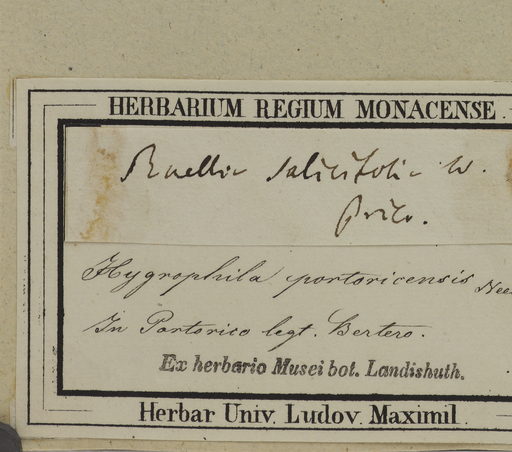 HERBARIUM REGIUM MONACENSE.
Ruellia salicifolia W.
Hygrophila portoricensis Nees
In Portorico legt. Bertero.
Ex herbario Musei bot. Landishuth.
Herbar Univ. Ludov. Maximil.